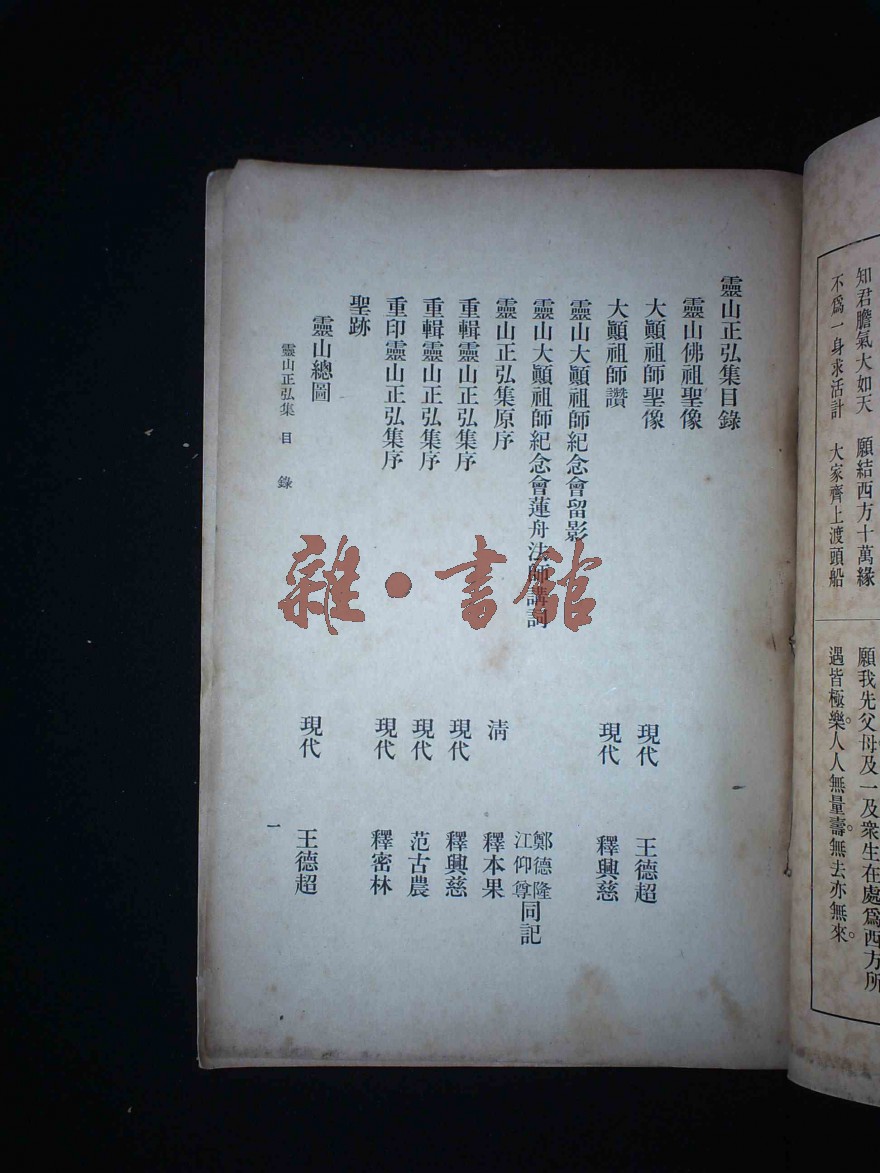 知君膽氣大如天 願結西方十萬緣
不爲一身求活計 大家齊上渡頭船
願我先父母及一及衆生在處爲西方所
遇皆極樂。人人無量壽。無去亦無來。
靈山正弘集目錄
靈山佛祖聖像
大顚祖師聖像 現代 王德超
大顚祖師讚 現代 釋興慈
靈山大顚祖師紀念會留影
靈山大顚祖師紀念會蓮舟法師講詞 鄭德隆 江仰尊 同記
靈山正弘集原序 淸 釋本果
重輯靈山正弘集序 現代 釋興慈
重輯靈山正弘集序 現代 范古農
重印靈山正弘集序 現代 釋密林
聖跡
靈山總圖 現代 王德超
靈山正弘集 目 錄 一
雜·書館